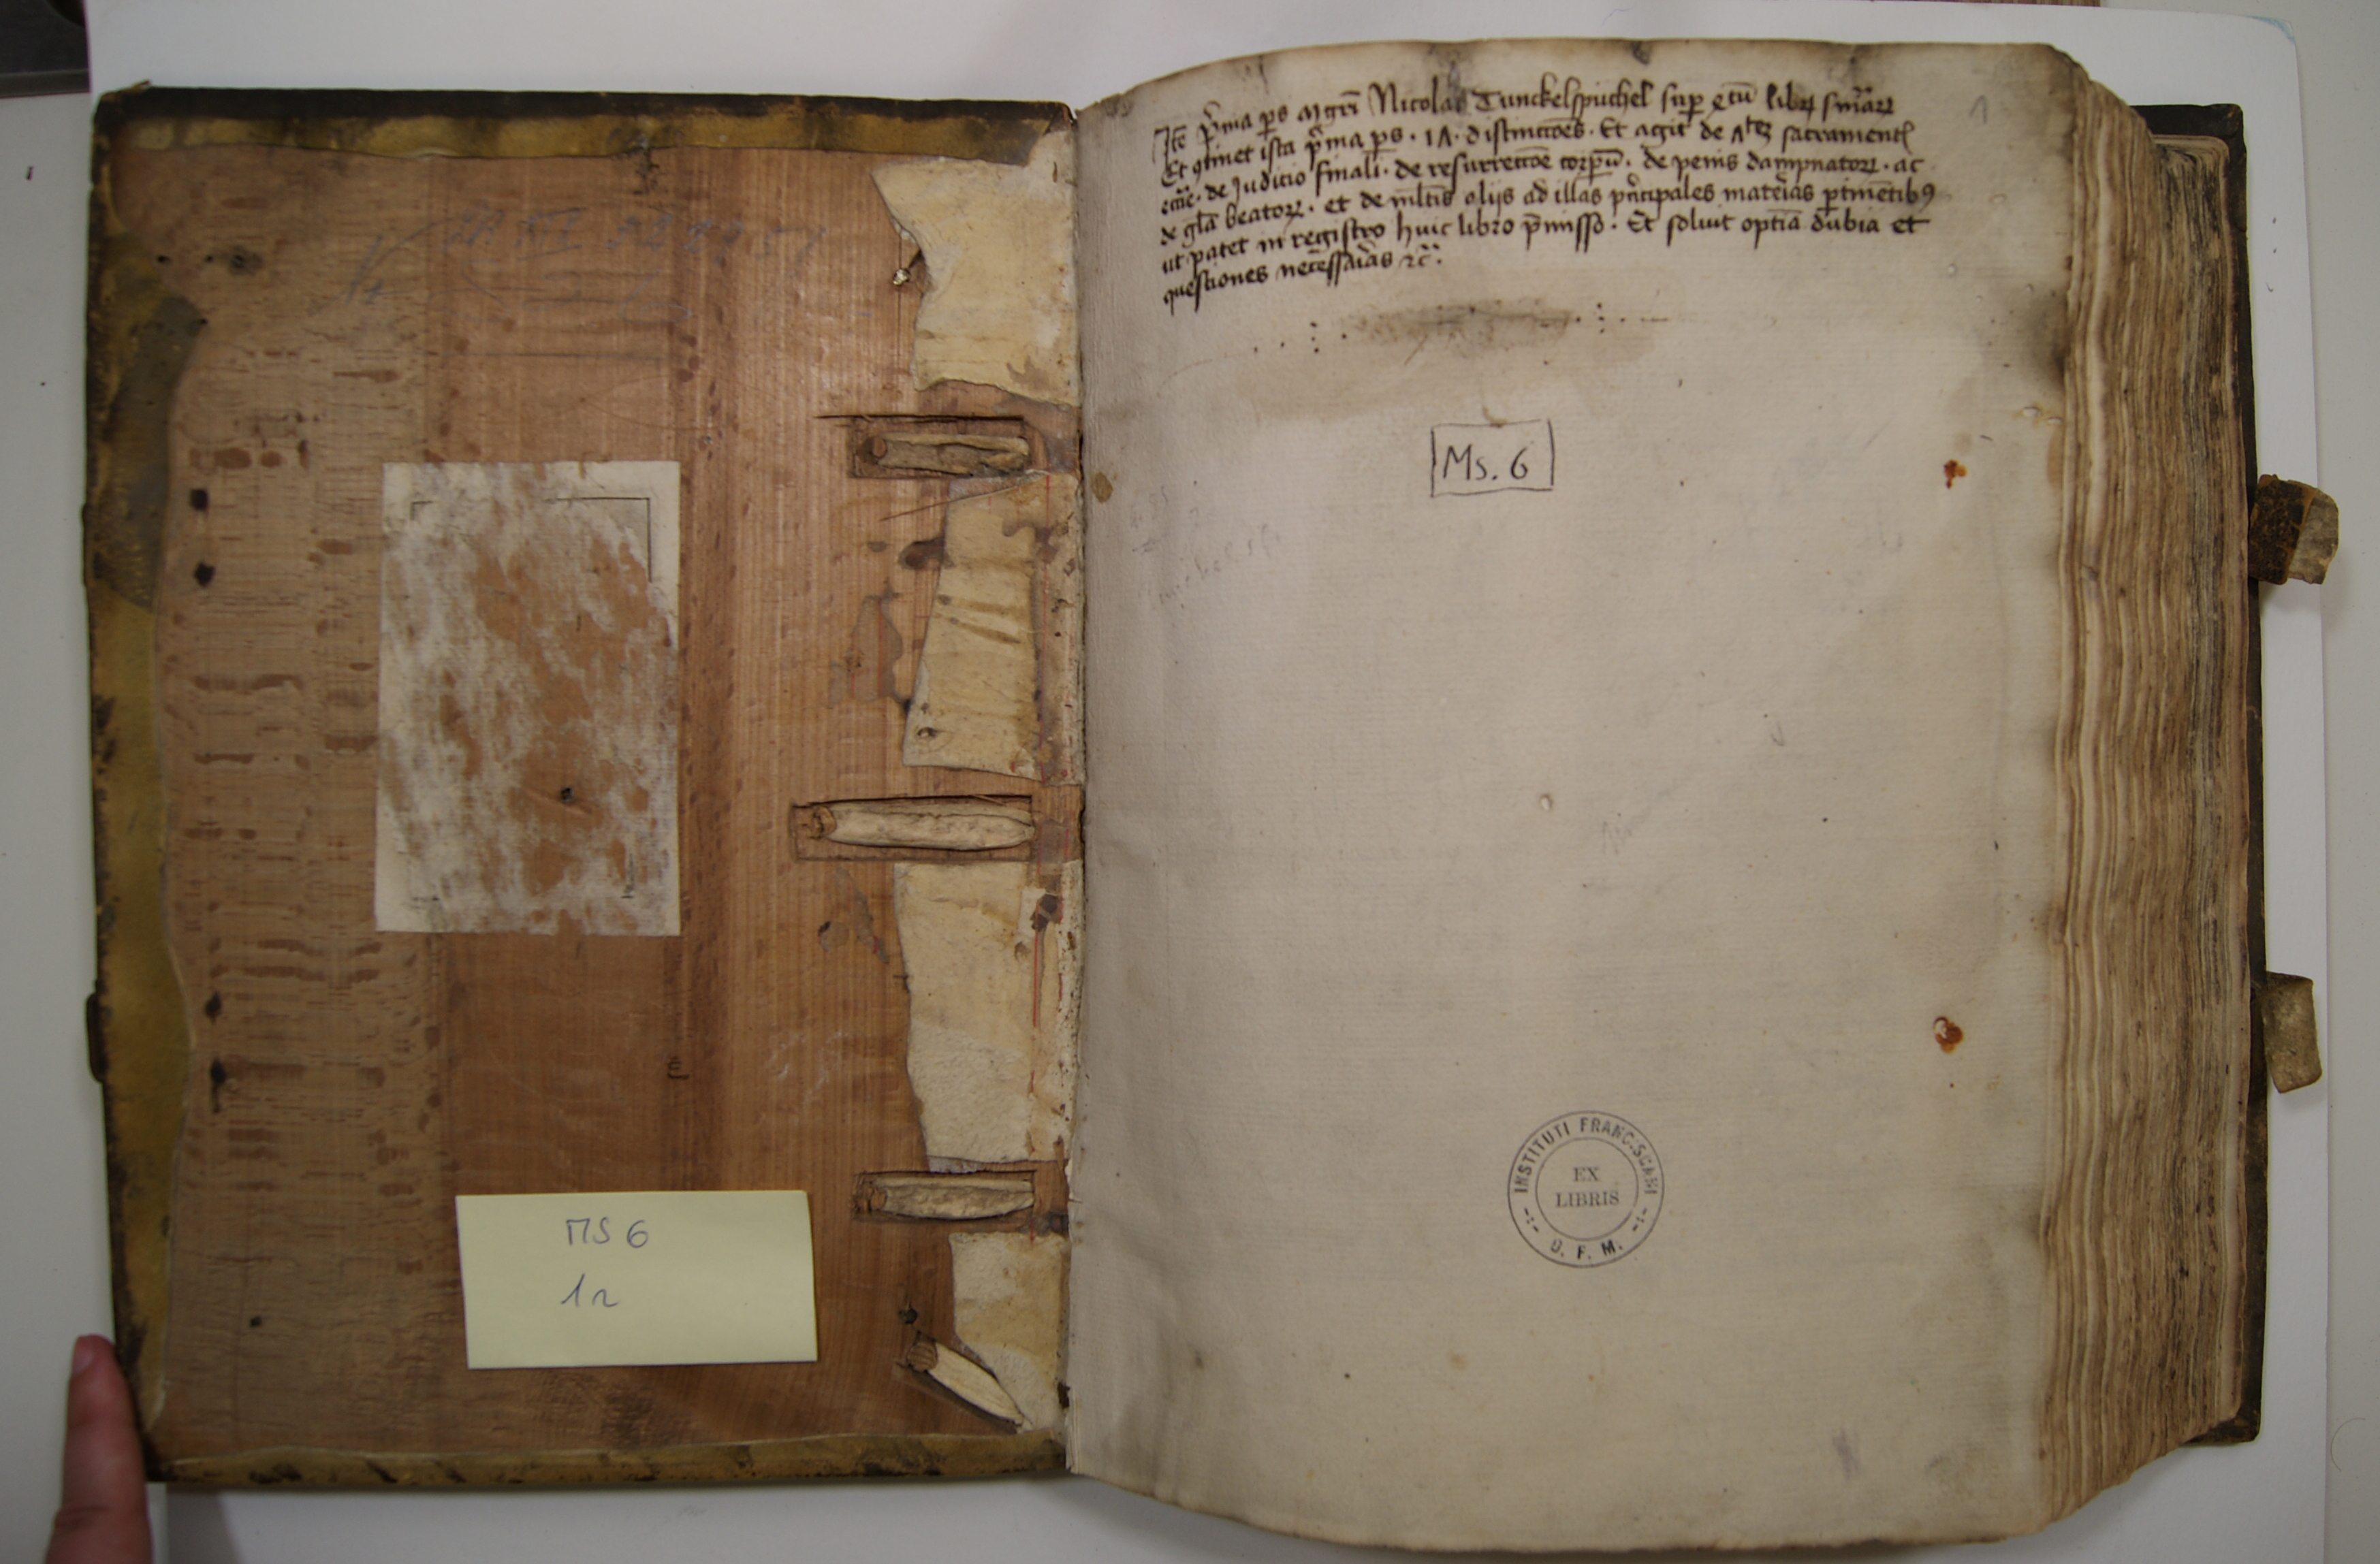 MS 6
1r
1
Itē p̄ma ps mgrī Nicolai Dunckelspuchel sup qrtū libꝝ sn̄iaꝝ
Et ꝯtinet ista p̄ma ps . 1Λ . distinctiōēs . Et agit de Λteꝫ sacramentꝭ
eccīe . de Juditio finali . de resurrectiōe corpꝝ . de penis dampnatoꝝ . ac
de gl̄a beatoꝝ . et de ml̄tis alijs ad illas pn̄cipales materias ptinētibꝰ
ut patet in registro huic libro p̄misso . Et soluit optīa dubia et
questiones necessarias ⁊c̄ .
Ms. 6
INSTITUTI FRANCISCANI
EX
LIBRIS
O. F. M.